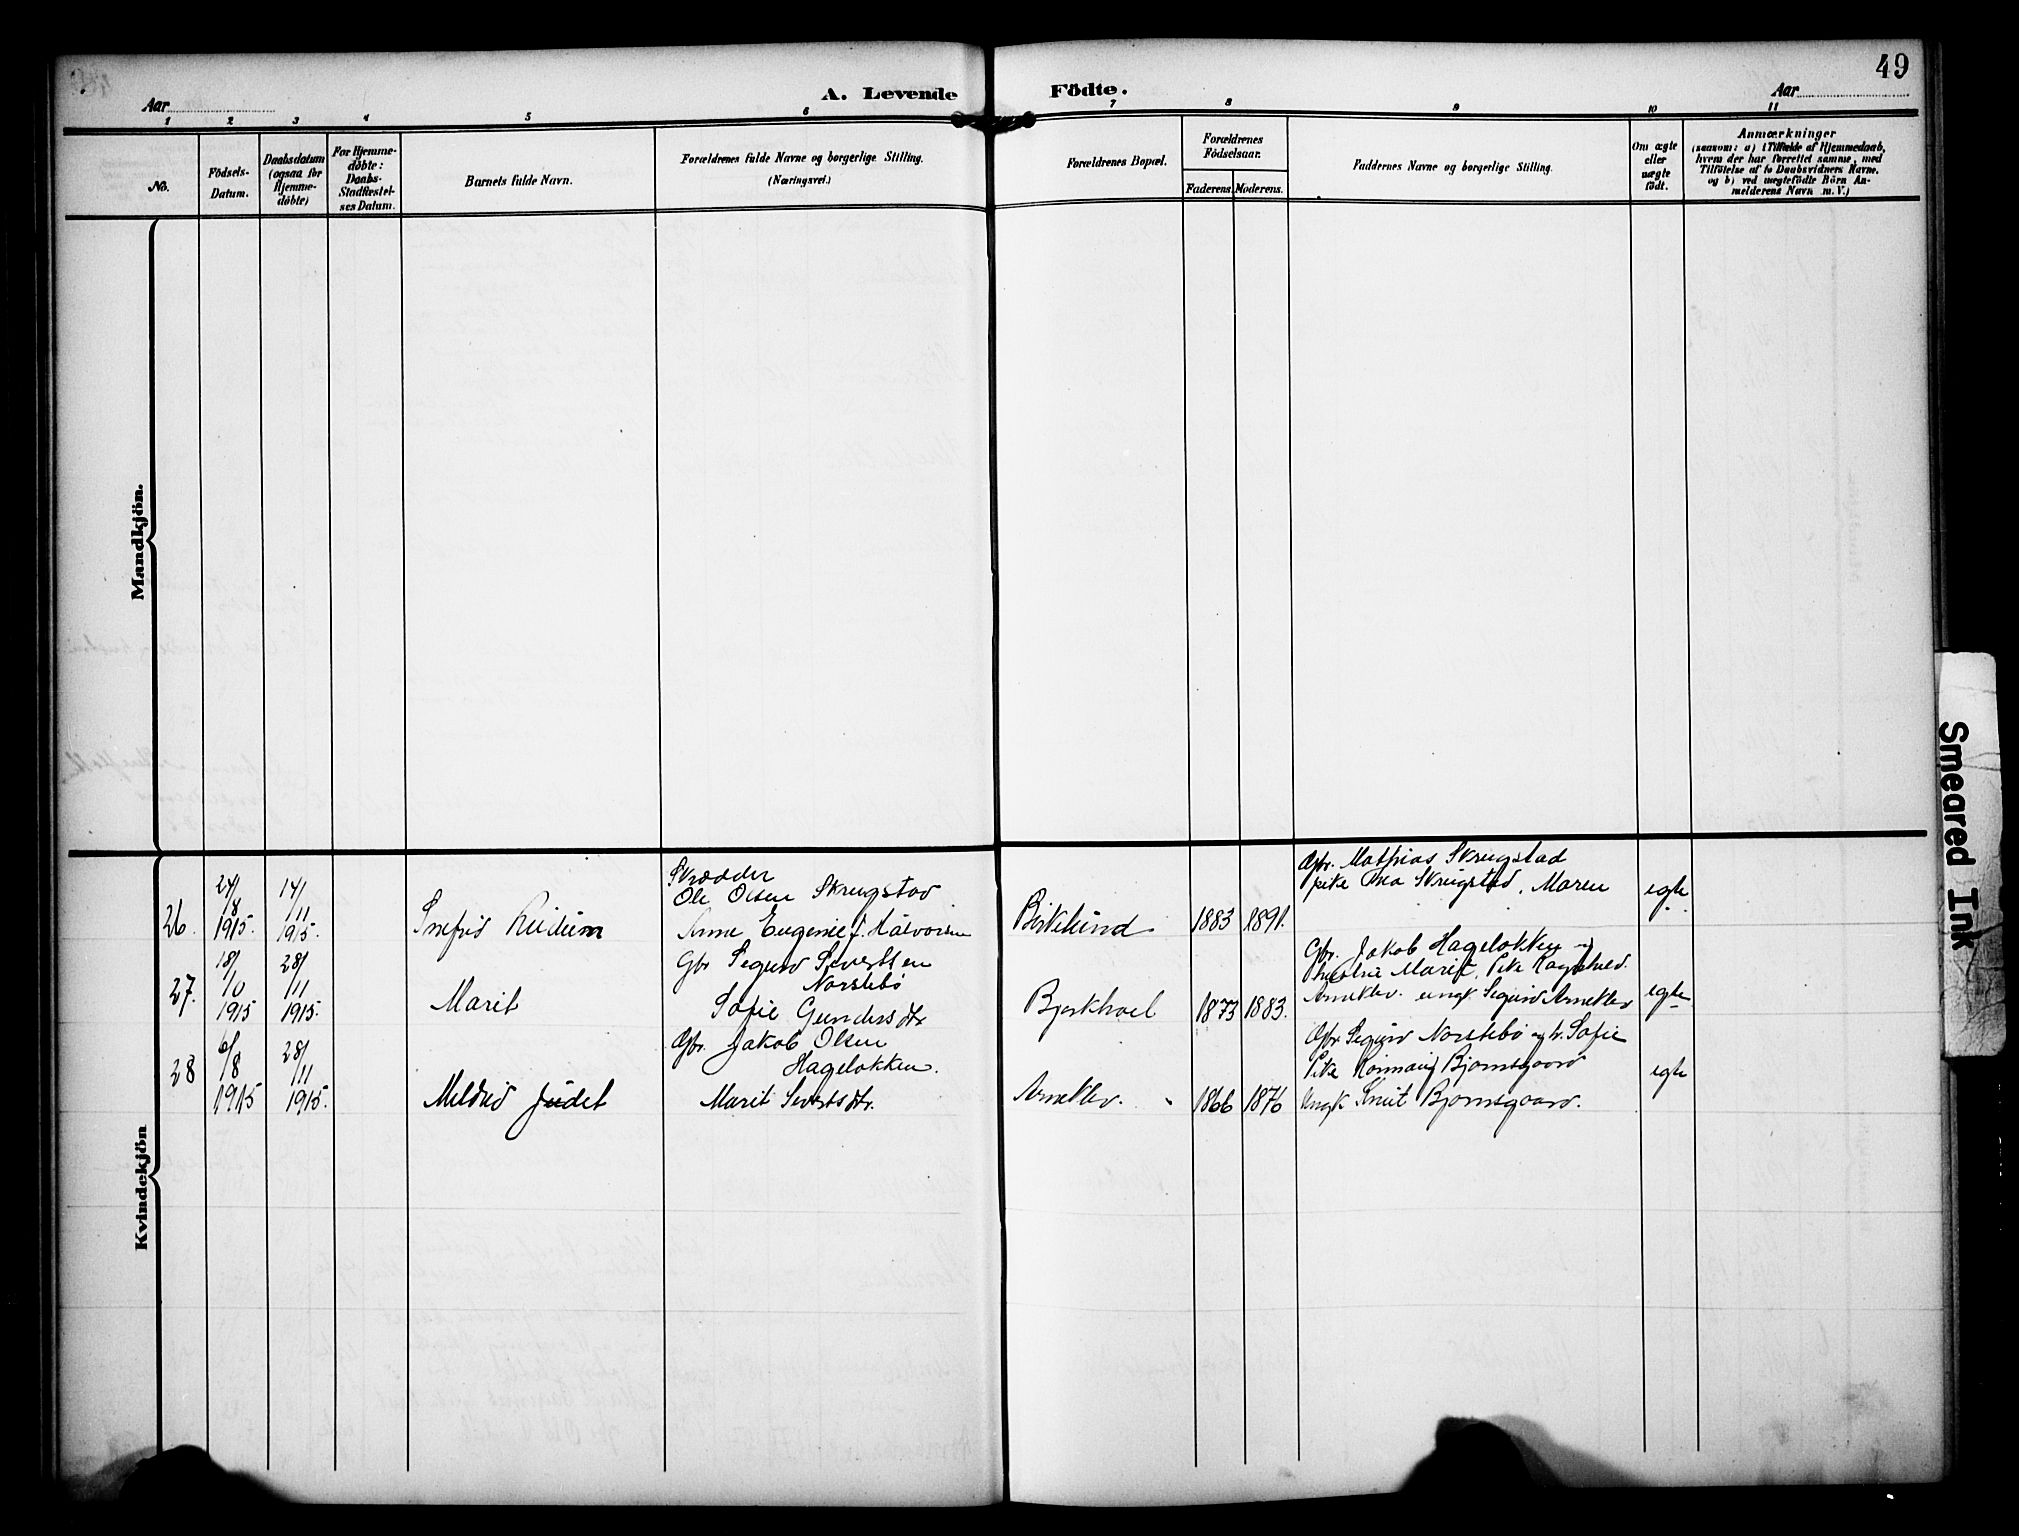 49
A. Levende Födte.
Aar
Aar
1 2 3 4 5 6 7 8 9 10 11
No.
Födsels-Datum.
Daabsdatum (ogsaa for Hjemme-döbte)
For Hjemme-döbte: Daabs-Stadfæstel-ses Datum.
Barnets fulde Navn.
Forældrenes fulde Navne og borgerlige Stilling.
(Næringsvei.)
Forældrenes Bopæl.
Forældrenes Födselsaar.
Faderens. Moderens.
Faddernes Navne og borgerlige Stilling.
Om ægte eller uægte födt.
Anmærkninger
(saasom: a) i Tilfælde af Hjemmedaab,
hvem der har forrettet samme, med
Tilföielse af to Daabsvidners Navne.
og b) ved uægtefödte Börn An-
melderens Navn m. V.)
Mandkjön.
Kvindekjön
26. 24/8 1915. 14/11 1915.
Skrædder
Ole Olsen Skrugstad
Anne Eugenie f. Halvorsen
1883 1891.
Gbr. Mathias Skrugstad
pike Skrugstad, Maren
egte
27. 18/10 1915 28/11 1915.
Marit
Gbr Sigurd Sivertsen
Norstebø
Sofie Gundersdtr
Bjørkhoel
1873 1883.
Gbr. Jakob Hageløkken og
hustru Marit, Pike
Arneklev. ungk. Sigurd Arneklev
egte
28 6/8 1915 28/11 1915.
Mildrid Judet
Gbr. Jakob Olsen
Hageløkken.
Marit Sivertsdtr.
Arneklev.
1866 1876
Gbr Sigurd Norstebø og h. Sofie
Pike Bjørnsgaard
Ungk Knut Bjørnsgaard.
egte
Smeared Ink